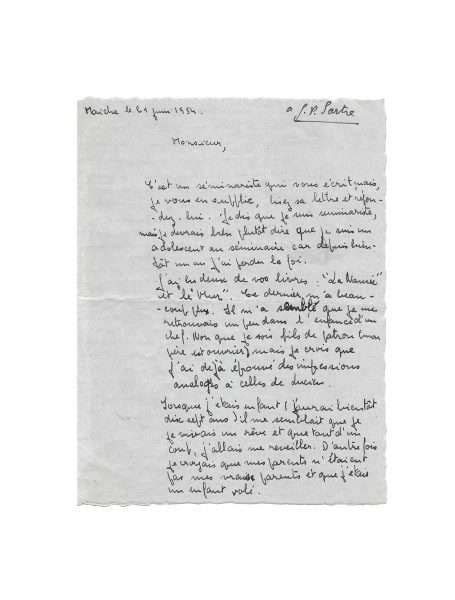 Maîche le 21 juin 1954.
à J.P. Sartre
Monsieur,
C'est un séminariste qui vous écrit mais,
je vous en supplie, lisez sa lettre et répon-
-dez-lui. Je dis que je suis séminariste,
mais je devrais bien plutôt dire que je suis un
adolescent au séminaire car depuis bien-
tôt un an j'ai perdu la foi.
J'ai lu deux de vos livres : "La Nausée"
et "le Mur". Ce dernier m'a beau-
-coup plu. Il m'a semblé que je me
retrouvais un peu dans l'enfance d'un
chef. Non que je sois fils de patron (mon
père est ouvrier) mais je crois que
j'ai déjà éprouvé des impressions
analogues à celles de Lucien.
Lorsque j'étais enfant (j'aurai bientôt
dix sept ans) il me semblait que je
je vivais un rêve et que tout d'un
coup, j'allais me réveiller. D'autre fois
je croyais que mes parents n'étaient
pas mes vrais parents et que j'étais
un enfant volé.